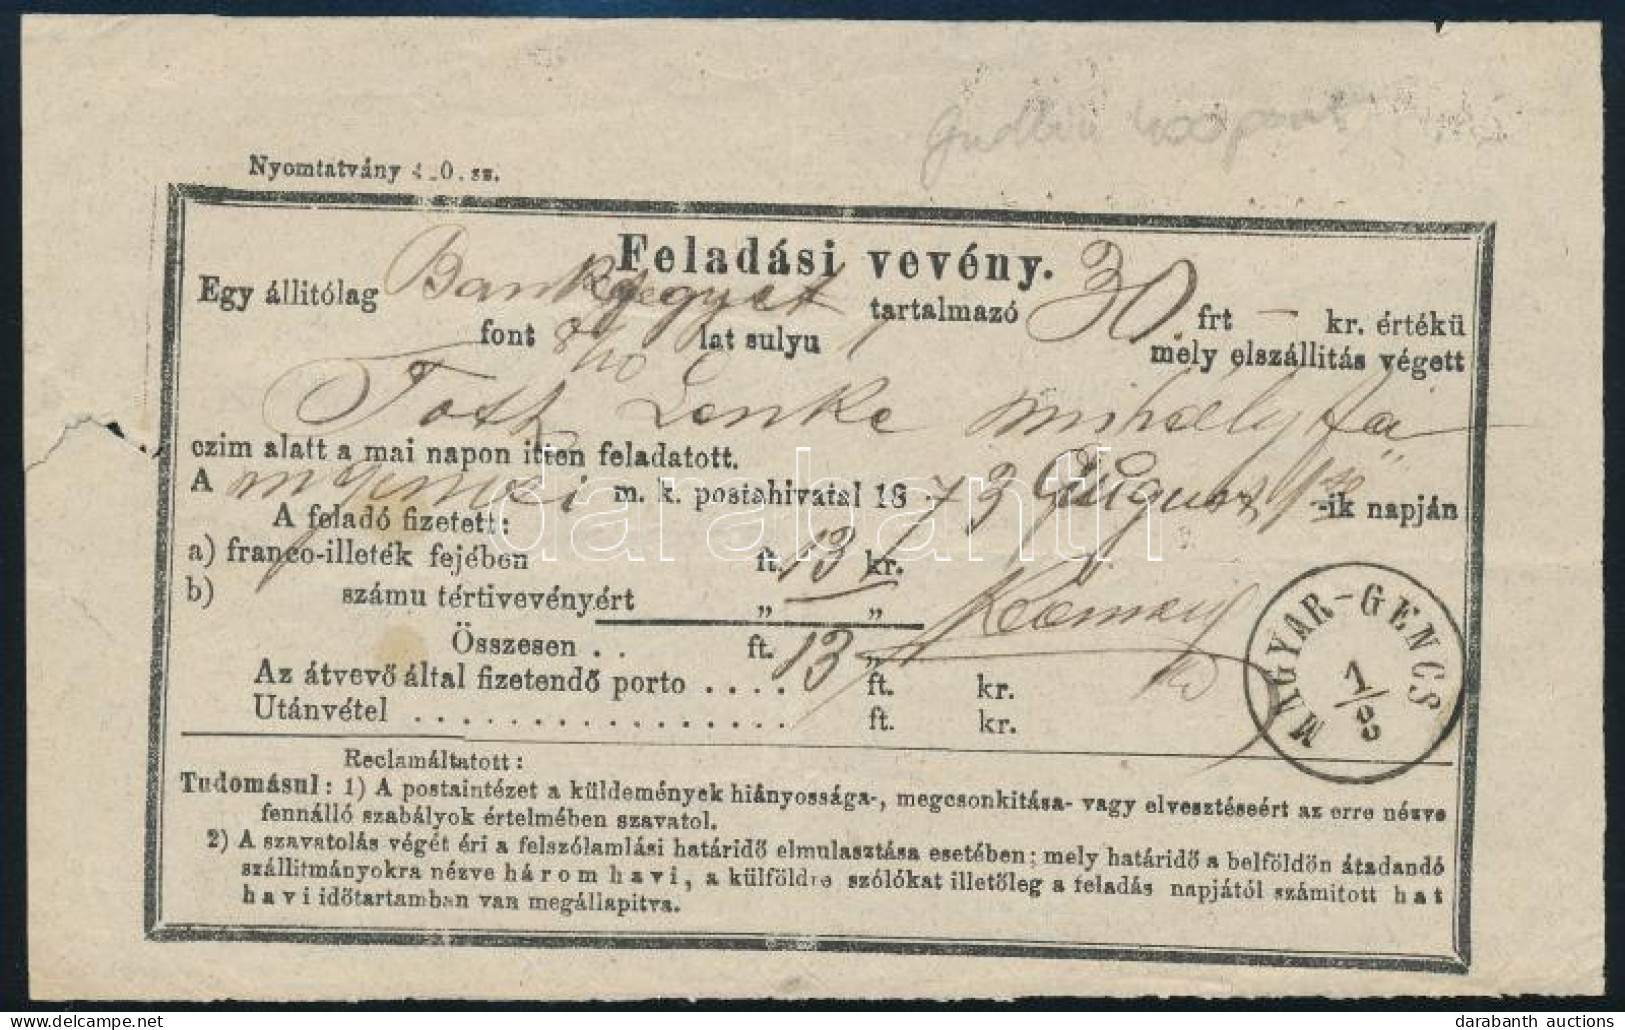 Nyomtatvány sz.
Feladási vevény.
Egy állitólag Bankjegyet tartalmazó 30 frt – kr. értékü
font lat sulyu mely elszállitás végett
Toth Lenke Mihályfa
czim alatt a mai napon itten feladatott.
A m. k. postahivatal 18 73 August 1 -ik napján
A feladó fizetett:
a) franco-illeték fejében ft. 13 kr.
b) számu tértivevényért „ „
Összesen . . ft. 13 „
Az átvevő által fizetendő porto . . . . ft. kr.
Utánvétel . . . . . . . . . . . . . . . . . ft. kr.
MAGYAR-GENCS
1/8
Reclamáltatott:
Tudomásul: 1) A postaintézet a küldemények hiányossága-, megcsonkitása- vagy elvesztéseért az erre nézve
fennálló szabályok értelmében szavatol.
2) A szavatolás végét éri a felszólamlási határidő elmulasztása esetében; mely határidő a belföldön átadandó
szállitmányokra nézve három havi, a külföldre szólókat illetőleg a feladás napjától számitott hat
havi időtartamban van megállapitva.
darabanth
Delcampe.net
darabanth auctions